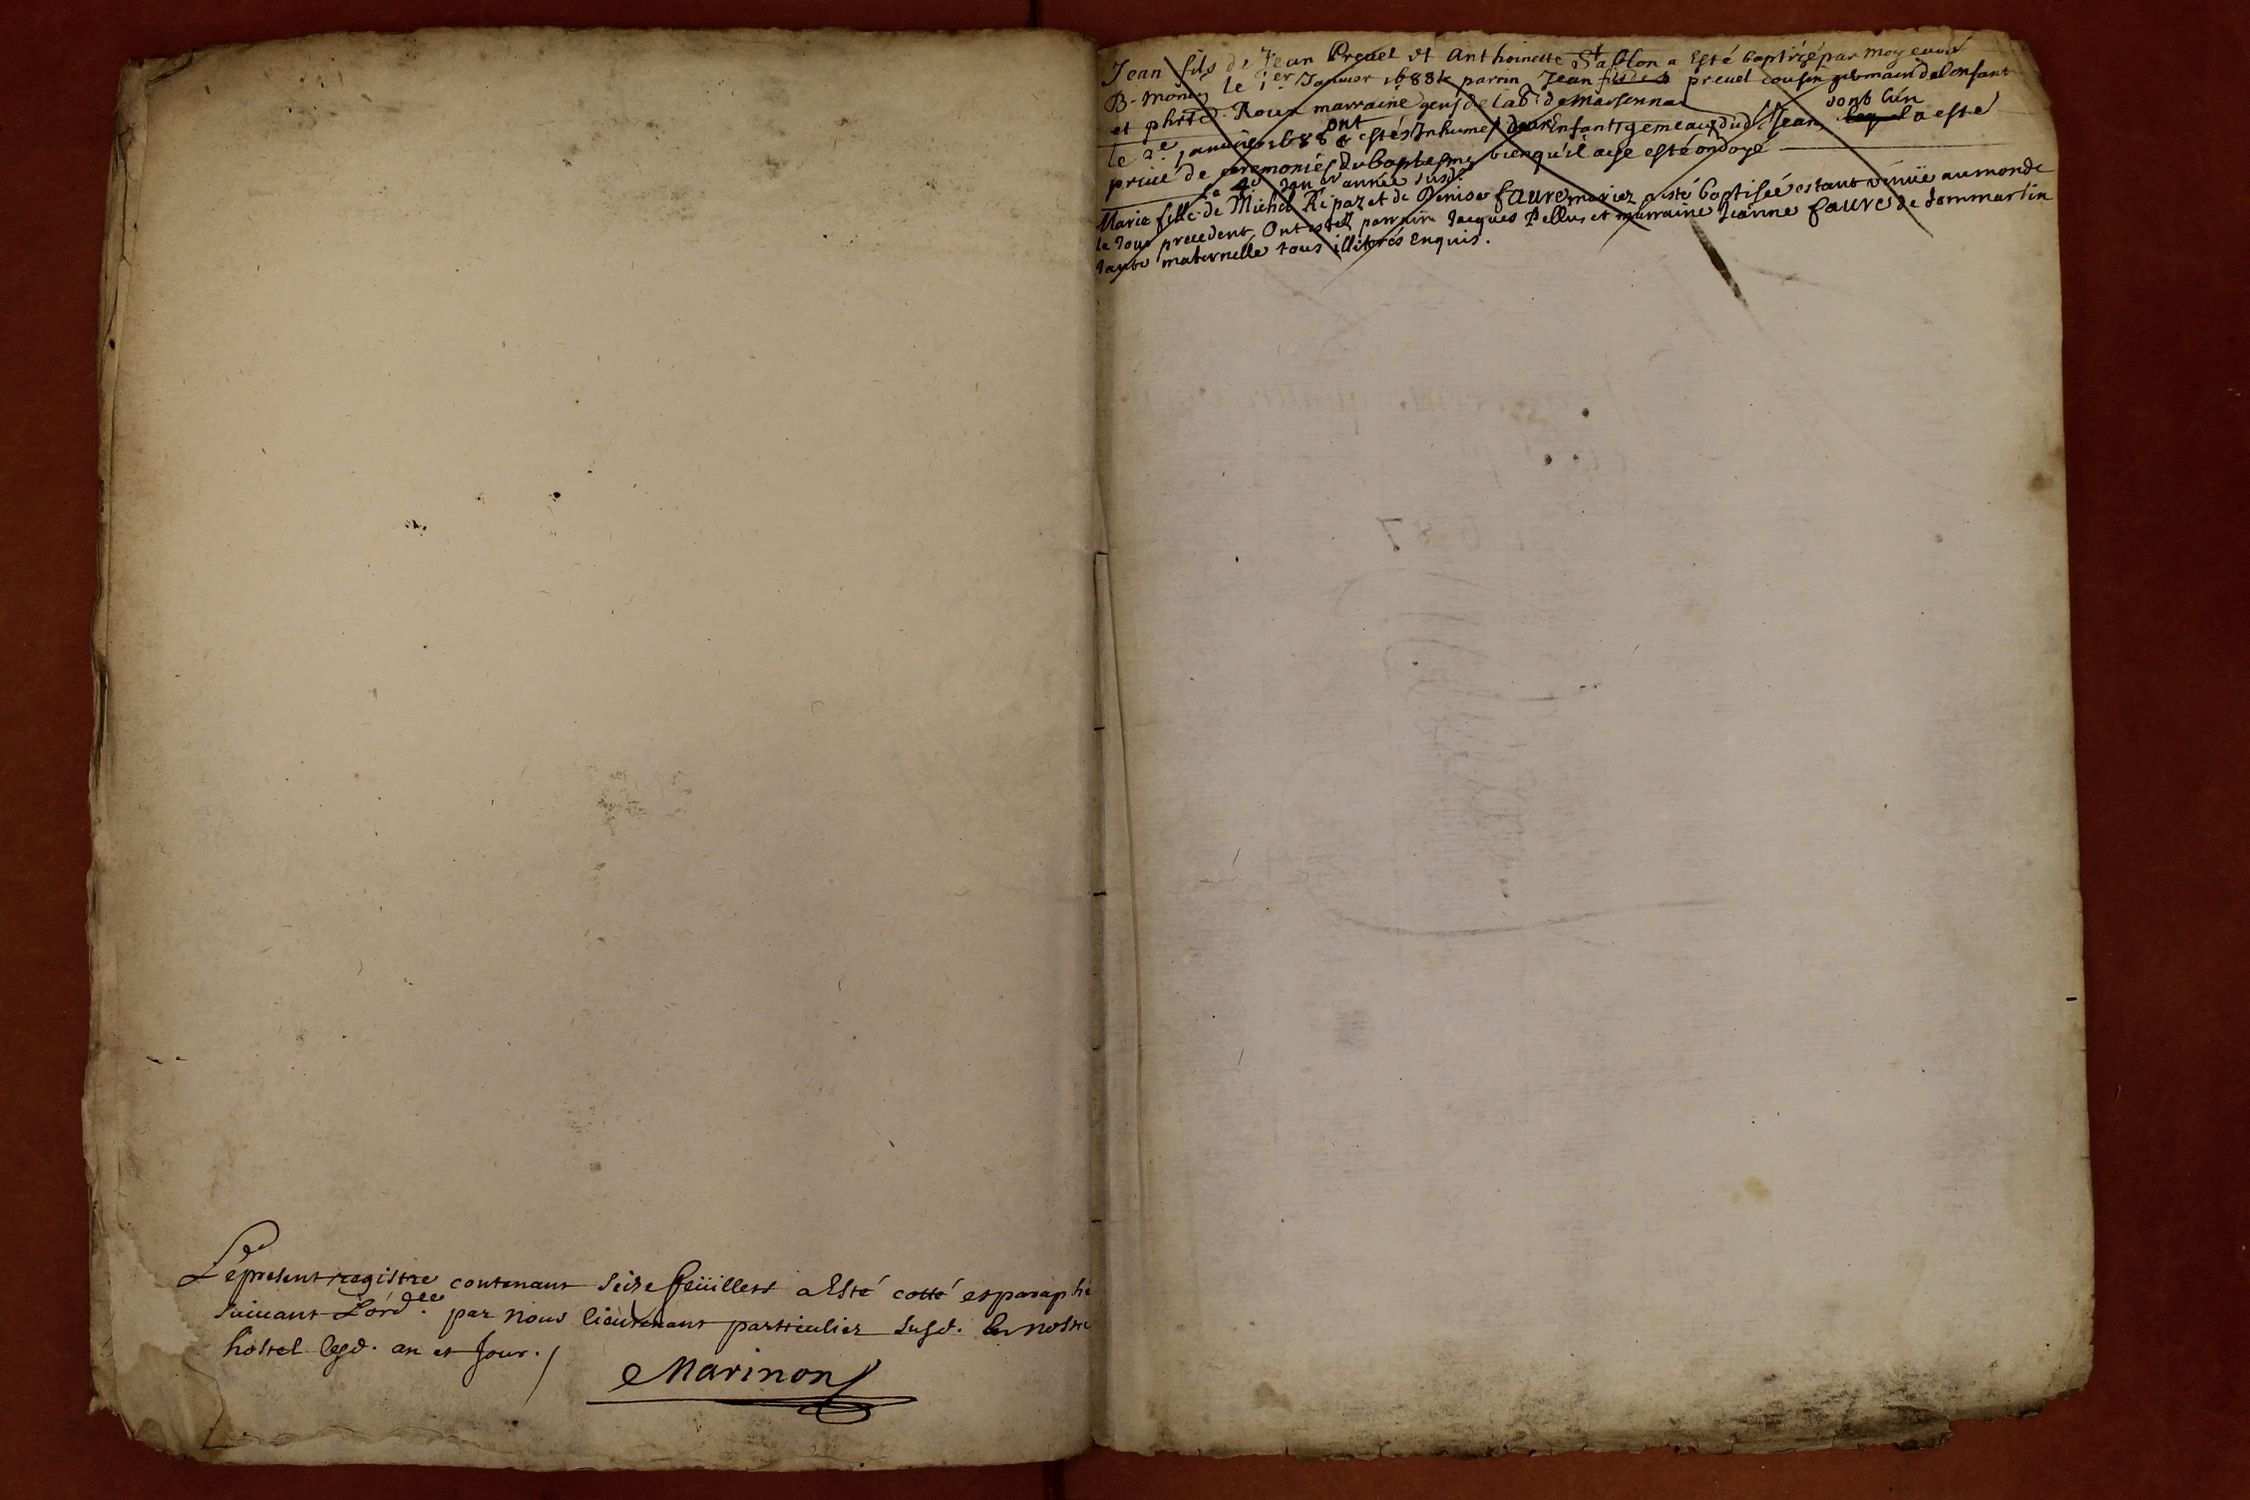 Le present registre contenant seize feüillets a Esté cotté et paraphé
suiuant Lord.ce par nous lieutenant particulier susd. En nostre
hostel lesd. an et Jour. /
Marinon
Jean fils de Jean Preuel et Anthoinette Sablon a Esté baptisé par moy curé
le 1.er Januier 1688 parrin Jean preuel cousin germain de lonfant
et Roux marraine gens de la
ont
dont l'un
le 2.e januier 1688 estés Inhumes deux Enfants gemeaux dud. Jean a esté
priué de ceremonies du baptesme bien qu'il aye esté ondoyé
le 4.e Jan.er année susd.
Marie fille de Michel Ripaz et de Denise faure mariez a esté baptisée estant venüe au monde
le Jour precedent. Ont estez parrain Jacques Pellus et marraine Jeanne faure de dommartin
tante maternelle tous illiterés Enquis.